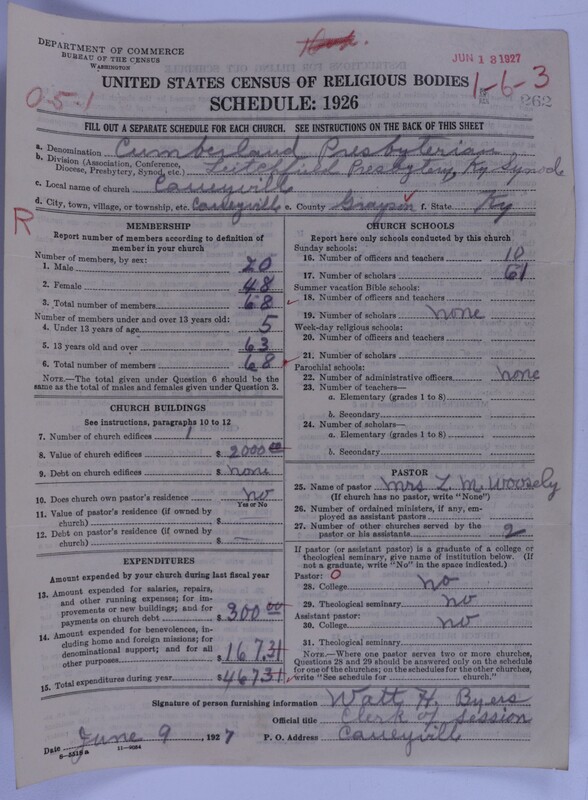 DEPARTMENT OF COMMERCE
BUREAU OF THE CENSUS
WASHINGTON
JUN 13 1927
UNITED STATES CENSUS OF RELIGIOUS BODIES
1-6-3
0-5-1
SCHEDULE: 1926
262
FILL OUT A SEPARATE SCHEDULE FOR EACH CHURCH. SEE INSTRUCTIONS ON THE BACK OF THIS SHEET
a. Denomination Cumberland Presbyterian
b. Division (Association, Conference, Diocese, Presbytery, Synod, etc.) Leitchfield Presbytery, Ky Synode
c. Local name of church Caneyville
d. City, town, village, or township, etc. Caneyville e. County Grayson f. State Ky
R
MEMBERSHIP
Report number of members according to definition of
member in your church
Number of members, by sex:
1. Male 20
2. Female 48
3. Total number of members 68
Number of members under and over 13 years old:
4. Under 13 years of age 5
5. 13 years old and over 63
6. Total number of members 68
NOTE.—The total given under Question 6 should be
same as the total of males and females given under Question 3.
CHURCH BUILDINGS
See instructions, paragraphs 10 to 12
7. Number of church edifices 1
8. Value of church edifices $ 2000 00
9. Debt on church edifices $ none
10. Does church own pastor's residence no
Yes or No
11. Value of pastor's residence (if owned by
church) $
12. Debt on pastor's residence (if owned by
church) $ —
EXPENDITURES
Amount expended by your church during last fiscal year
13. Amount expended for salaries, repairs,
and other running expenses; for im-
provements or new buildings; and for
payments on church debt $ 300 00
14. Amount expended for benevolences, in-
cluding home and foreign missions; for
denominational support; and for all
other purposes $ 167.31
15. Total expenditures during year $ 467.31
CHURCH SCHOOLS
Report here only schools conducted by this church
Sunday schools:
16. Number of officers and teachers 10
17. Number of scholars 61
Summer vacation Bible schools:
18. Number of officers and teachers
19. Number of scholars none
Week-day religious schools:
20. Number of officers and teachers
21. Number of scholars
Parochial schools:
22. Number of administrative officers none
23. Number of teachers—
a. Elementary (grades 1 to 8)
b. Secondary
24. Number of scholars—
a. Elementary (grades 1 to 8)
b. Secondary
PASTOR
25. Name of pastor Mrs L. M. Woosely
(If church has no pastor, write "None")
26. Number of ordained ministers, if any, em-
ployed as assistant pastors
27. Number of other churches served by the
pastor or his assistants 2
If pastor (or assistant pastor) is a graduate of a college or
theological seminary, give name of institution below. (If
not a graduate, write "No" in the space indicated.)
Pastor: 0
28. College no
29. Theological seminary no
Assistant pastor:
30. College no
31. Theological seminary
NOTE.—Where one pastor serves two or more churches,
Questions 28 and 29 should be answered only on the schedule
for one of the churches; on the schedules for the other churches,
write "See schedule for church."
Signature of person furnishing information Watt H. Byers
Official title Clerk of Session
Date June 9, 1927 P. O. Address Caneyvill
8-5518 a 11-9084